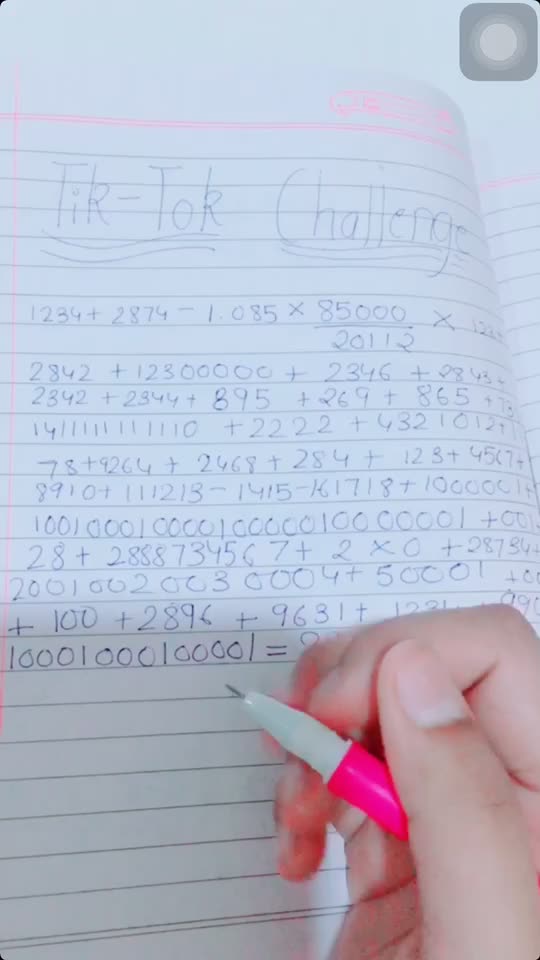 Tik-Tok Challenge
1234 + 2874 - 1.085 × 85000/20112 ×
2842 + 12300000 + 2346 + 2843+
2342 + 2344 + 895 + 269 + 865 +
1411111111110 + 2222 + 4321012+
78+9264 + 2468 + 284 + 123 + 4567+
8910+111213-1415-161718+1000001+
1001000100001000001000000 1 +001
28 + 2888734567 + 2 × 0 + 28734+
2001002003 0004+ 50001 +00
+ 100 + 2896 + 9631 + 1231
1000100010000 1 =